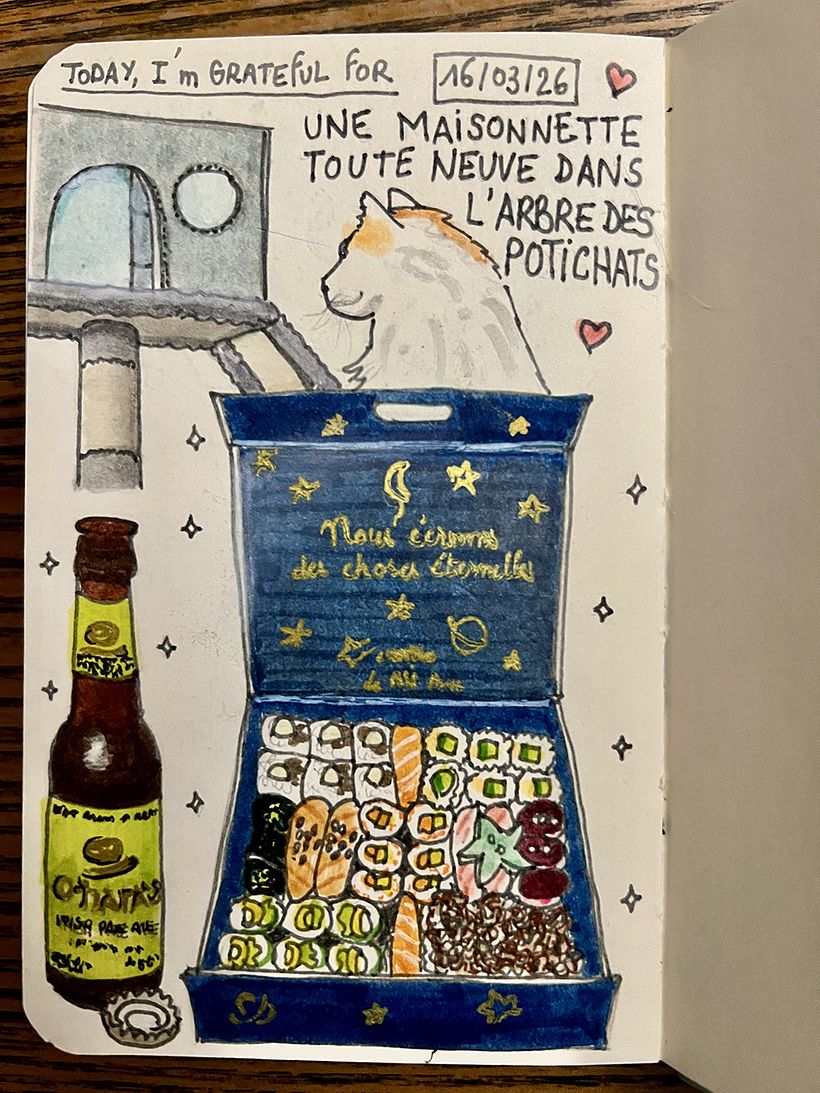 TODAY, I'm GRATEFUL FOR
16/03/26
UNE MAISONNETTE
TOUTE NEUVE DANS
L'ARBRE DES
POTICHATS
Nous écrivons
des choses éternelles
de
O'HARA'S
IRISH PALE ALE